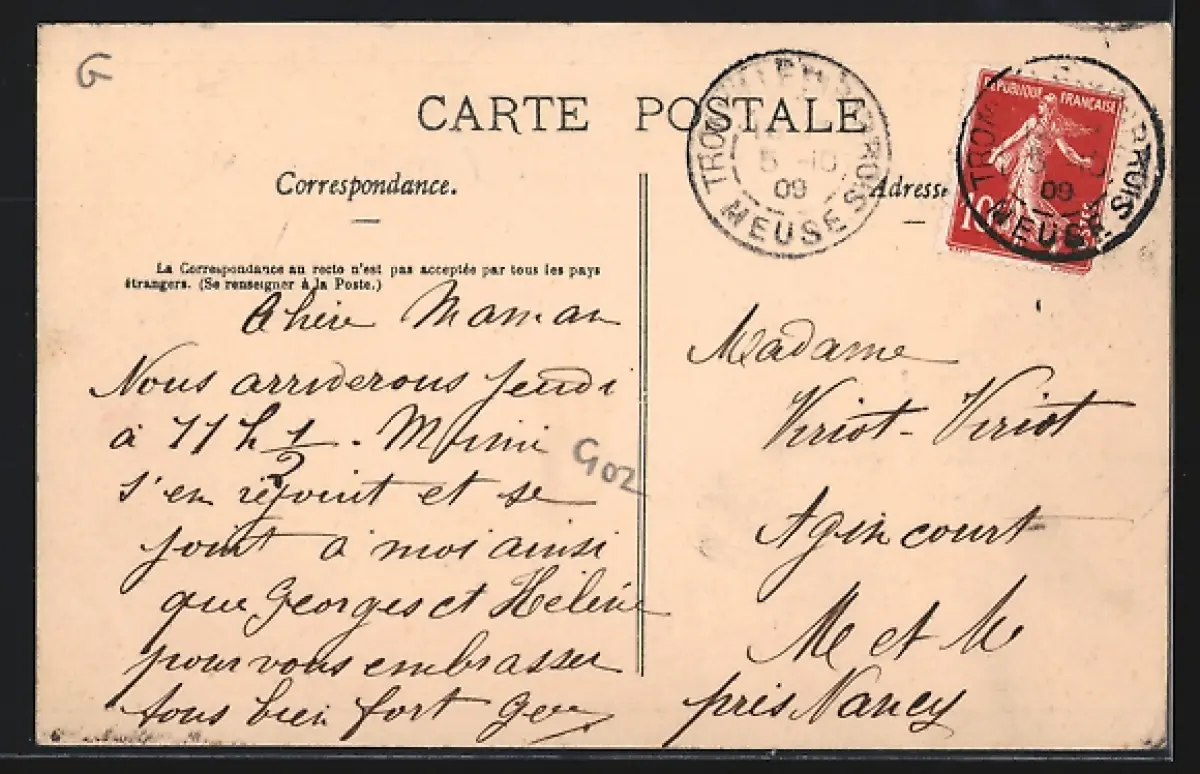 G
CARTE POSTALE
Correspondance.
La Correspondance au recto n'est pas acceptée par tous les pays
étrangers. (Se renseigner à la Poste.)
Chère Maman
Nous arriverons jeudi
à 11 h 1/2. Mimi
s'en réjouit et se
joint à moi ainsi
que Georges et Hélène
pour vous embrasser
tous bien fort
G02
TRONVILLE-EN-BARROIS
5 -10
09
MEUSE
Adresse
RÉPUBLIQUE FRANÇAISE
10
TRONVILLE-EN-BARROIS
09
MEUSE
Madame
Viriot-Viriot
Agincourt
M et M
près Nancy